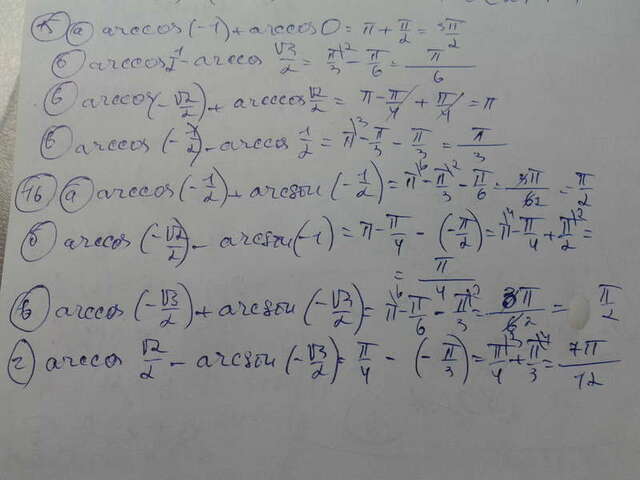 15 а) arccos(-1) + arccos 0 = π + π/2 = 3π/2
б) arccos 1/2 - arccos √3/2 = π/3 - π/6 = π/6
в) arccos(-√2/2) + arccos √2/2 = π - π/4 + π/4 = π
б) arccos(-1/2) - arccos 1/2 = π - π/3 - π/3 = π/3
16 а) arccos(-1/2) + arcsin(-1/2) = π - π/3 - π/6 = 3π/6 = π/2
б) arccos(-√2/2) - arcsin(-1) = π - π/4 - (-π/2) = π - π/4 + π/2 =
= π/4
в) arccos(-√3/2) + arcsin(-√3/2) = π - π/6 - π/3 = 3π/6 = π/2
г) arccos √2/2 - arcsin(-√3/2) = π/4 - (-π/3) = π/4 + π/3 = 7π/12